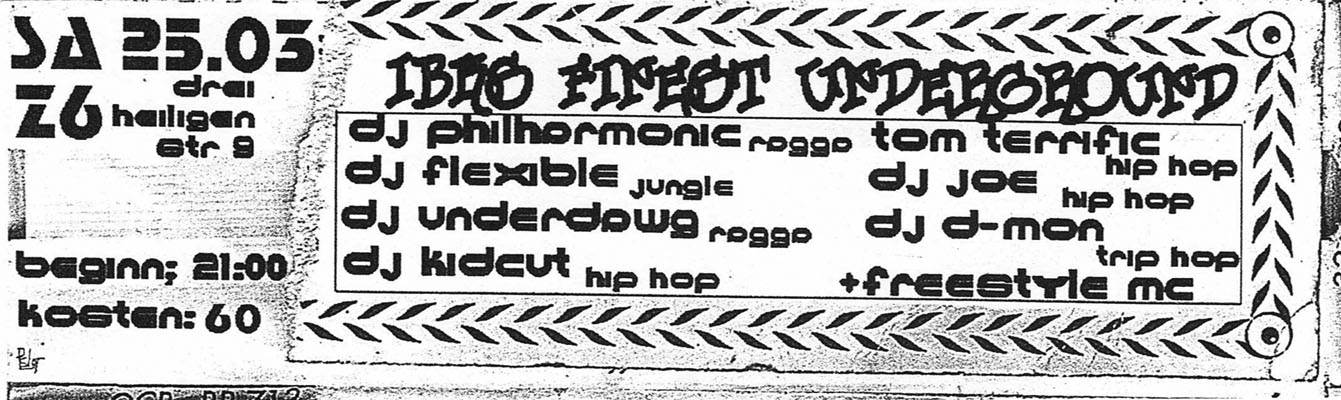 SA 25.03
Z6 drei
heiligen
str 9
beginn; 21:00
kosten: 60
IBKS FINEST UNDERGROUND
dj philharmonic ragga
dj flexible jungle
dj underdawg ragga
dj kidcut hip hop
tom terrific
hip hop
dj joe hip hop
dj d-mon
trip hop
+freestyle mc